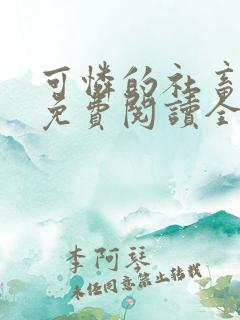 可憐的社畜
免費閱讀全
李阿琴
未經同意禁止轉載